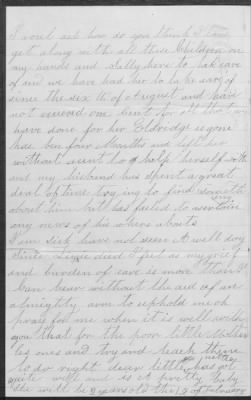 I will ask how do you think I can
get along with all these Children on
my hands and Sally here to take care
of and we have had her to take care of
since the six th of August and have
not received one Cent for all that we
have done for her Eldredge is gone
has ben four Months and left her
without a cent to help herself with
and my husband has spent a great
deal of time trying to find something
about him but has failed to ascertain
any news of his where abouts
I am sick have not seen A well day
since died I feel as my grief
and burden of care is more than I
can bear without the aid of an
almighty arm to uphold me oh
pray for me when it is well with
you that for the poor little Mother
less ones and try and teach them
to do right dear little has got
quite well and is a pretty baby
She will be 2 years old the 13 of February